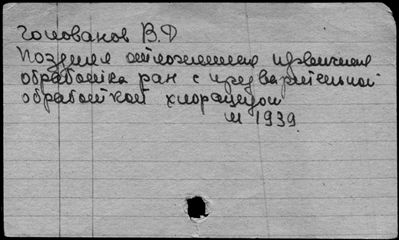 Голованов В.Ф
Поздняя отложенная первичная
обработка ран с предварительной
обработкой хлорацидом
М 1939